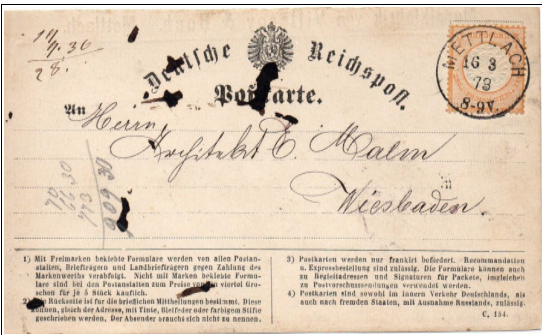 17/9.36
28.
Deutsche Reichspost.
Postkarte.
METTLACH
16 3
73
8-9V.
An
Herrn
Architekt E. Malm
Wiesbaden.
70
66 30
773
909 30
1) Mit Freimarken beklebte Formulare werden von allen Postan-
stalten, Briefträgern und Landbriefträgern gegen Zahlung des
Markenwerths verabfolgt. Nicht mit Marken beklebte Formu-
lare sind bei den Postanstalten zum Preise von viertel Gro-
schen für je 5 Stück käuflich.
2) Die Rückseite ist für die brieflichen Mittheilungen bestimmt. Diese
können, gleich der Adresse, mit Tinte, Bleifeder oder farbigem Stifte
geschrieben werden. Der Absender braucht sich nicht zu nennen.
3) Postkarten werden nur frankirt befördert. Recommandation
u. Expressbestellung sind zulässig. Die Formulare können auch
zu Begleitadressen und Signaturen für Packete, imgleichen
zu Postvorschusssendungen verwendet werden.
4) Postkarten sind sowohl im innern Verkehr Deutschlands, als
auch nach fremden Staaten, mit Ausnahme Russlands, zulässig.
C. 154.